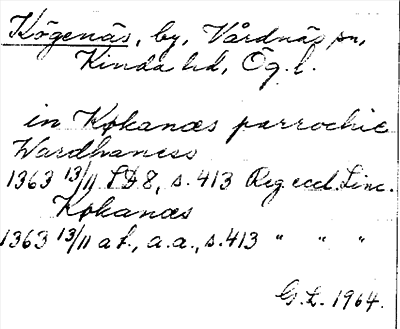 Kögenäs, by, Vårdnäs sn,
Kinda hd, Ög. l.
in Køkanæs parrochie
Wardhaness
1363 13/11 SD 8, s. 413 Reg. eccl. Linc.
Køkanæs
1363 13/11 a f., a.a., s. 413 " " "
G. L. 1964.